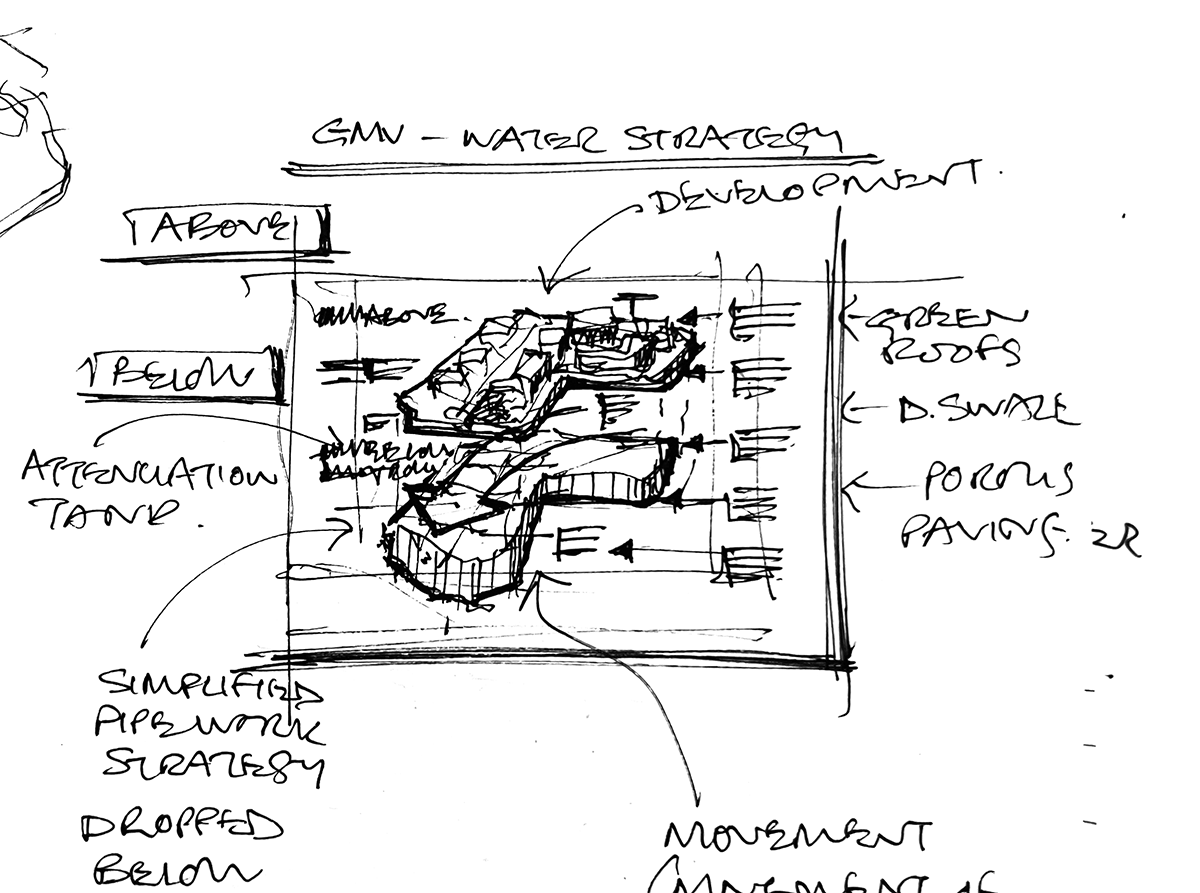 GMV - WATER STRATEGY
DEVELOPMENT.
1 ABOVE
ABOVE.
GREEN
ROOFS
1 BELOW
D. SWALE
ATTENUATION
TANK.
BELOW
POROUS
PAVING.
SIMPLIFIED
PIPEWORK
STRATEGY
DROPPED
BELOW
MOVEMENT